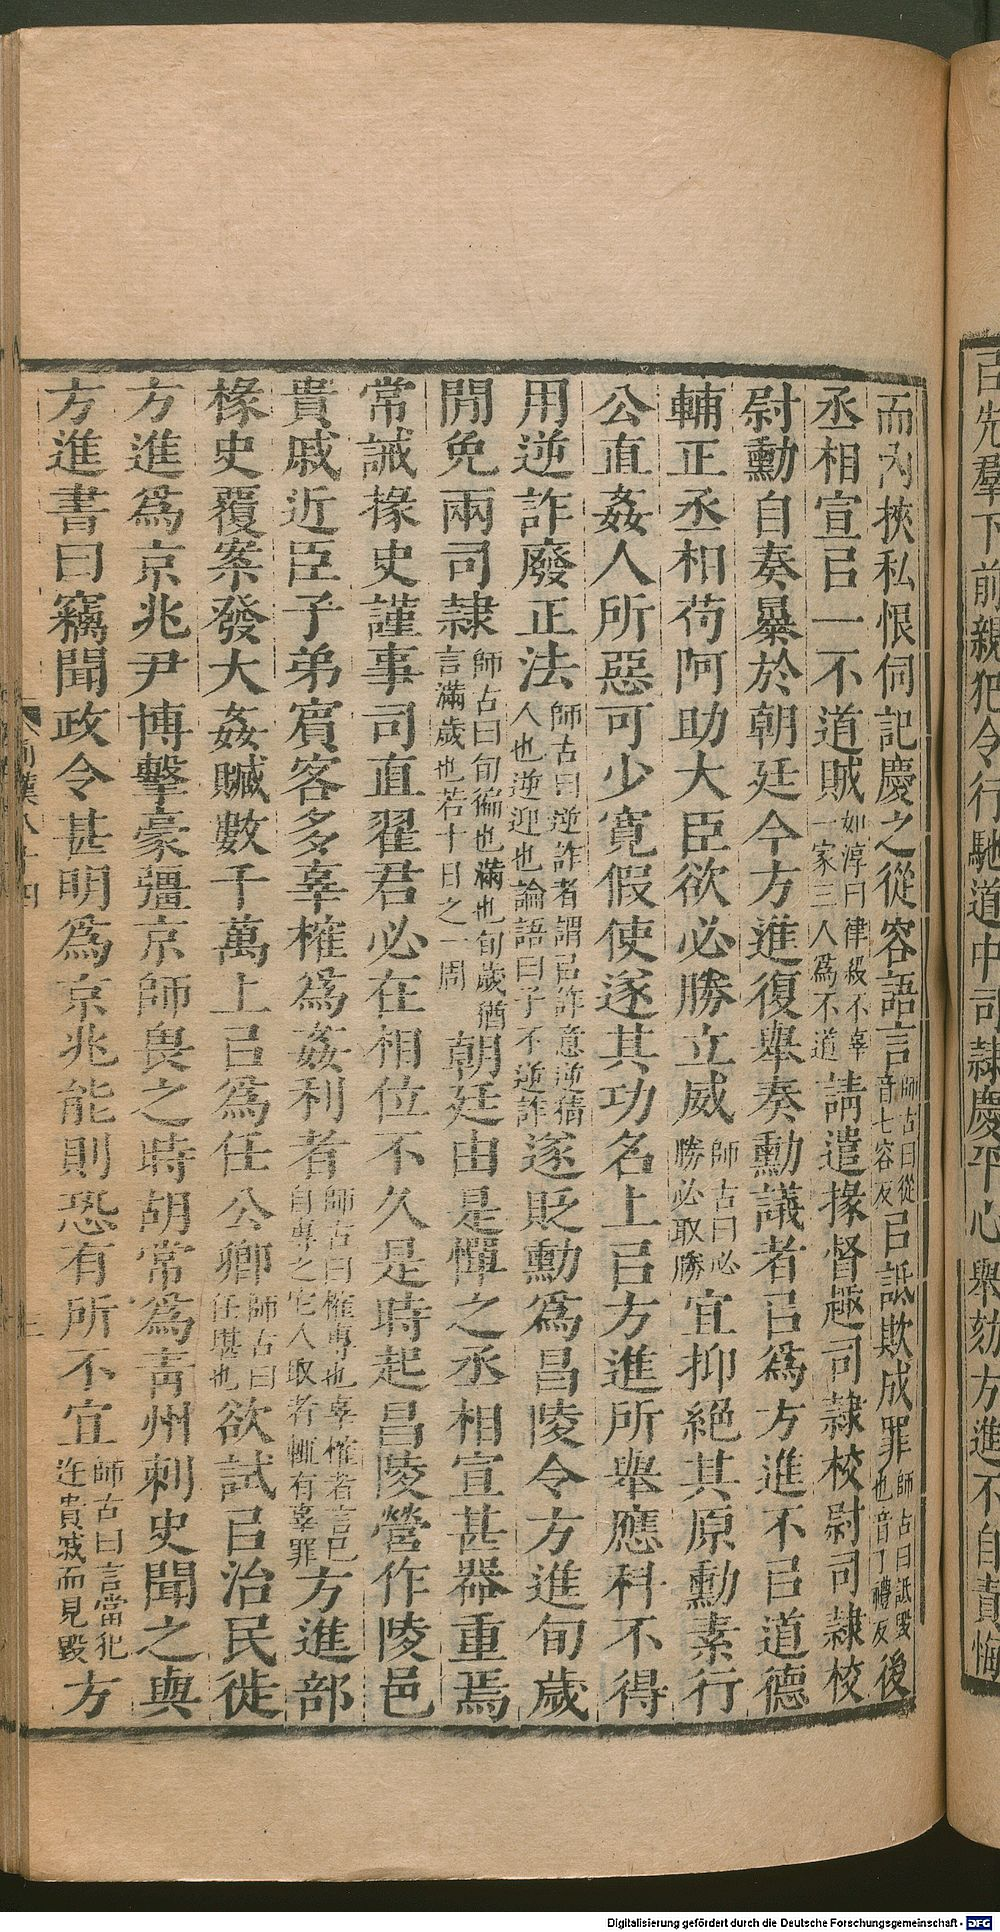 百先羣下前親犯令行馳道中司隸慶平心舉劾方進不自責悔
而內挾私恨伺記慶之從容語言師古曰從音七容反㠯詆欺成罪師古曰詆毀也音丁禮反後
丞相宣㠯一不道賊如淳曰律殺不辜一家三人爲不道請遣掾督趣司隸校尉司隸校
尉勳自奏暴於朝廷今方進復舉奏勳議者㠯爲方進不㠯道德
輔正丞相苟阿助大臣欲必勝立威師古曰必勝必取勝宜抑絕其原勳素行
公直姦人所惡可少寬假使遂其功名上㠯方進所舉應科不得
用逆詐廢正法師古曰逆詐者謂㠯詐意逆猜人也逆迎也論語曰子不逆詐遂貶勳爲昌陵令方進旬歲
閒免兩司隸師古曰旬徧也滿也旬歲猶言滿歲也若十日之一周朝廷由是憚之丞相宣甚器重焉
常誡掾史謹事司直翟君必在相位不久是時起昌陵營作陵邑
貴戚近臣子弟賓客多辜榷爲姦利者師古曰榷專也辜榷者言已自專之它人取者輒有辜罪方進部
掾史覆案發大姦贓數千萬上㠯爲任公卿師古曰任堪也欲試㠯治民徙
方進爲京兆尹博擊豪彊京師畏之時胡常爲靑州刺史聞之與
方進書曰竊聞政令甚明爲京兆能則恐有所不宜師古曰言當犯迕貴戚而見毀方
前漢八十四
Digitalisierung gefördert durch die Deutsche Forschungsgemeinschaft - DFG